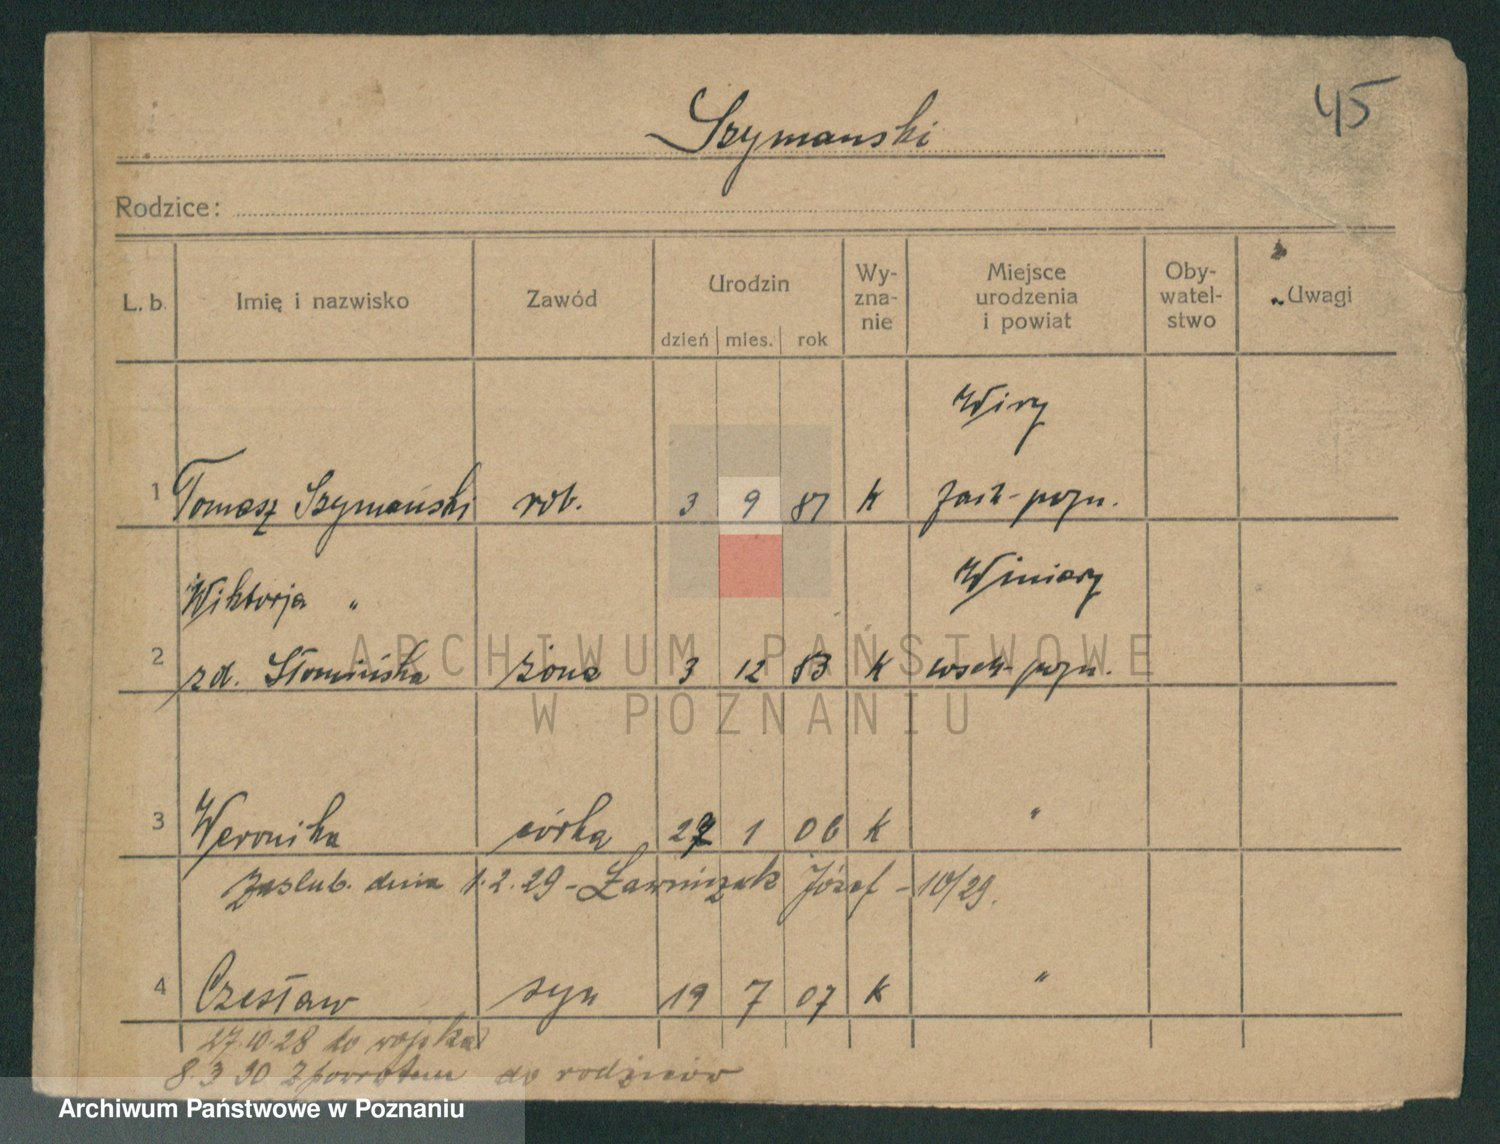 45
Szymanski
Rodzice:
L. b. Imię i nazwisko Zawód Urodzin dzień mies. rok Wy-zna-nie Miejsce urodzenia i powiat Oby-watel-stwo Uwagi
Wiry
1 Tomasz Szymański rob. 3 9 81 k zach-pozn.
Wiktorja " Winiary
2 zd. Słomińska żona 3 12 83 k wsch-pozn.
3 Weronika córka 27 1 06 k "
Zaslub. dnia 1.2.29 - Ławniczak Józef - 10/29.
4 Czesław syn 19 7 07 k "
27.10.28 do wojska
8.3 30 z powrotem do rodziców
ARCHIWUM PAŃSTWOWE
W POZNANIU
Archiwum Państwowe w Poznaniu